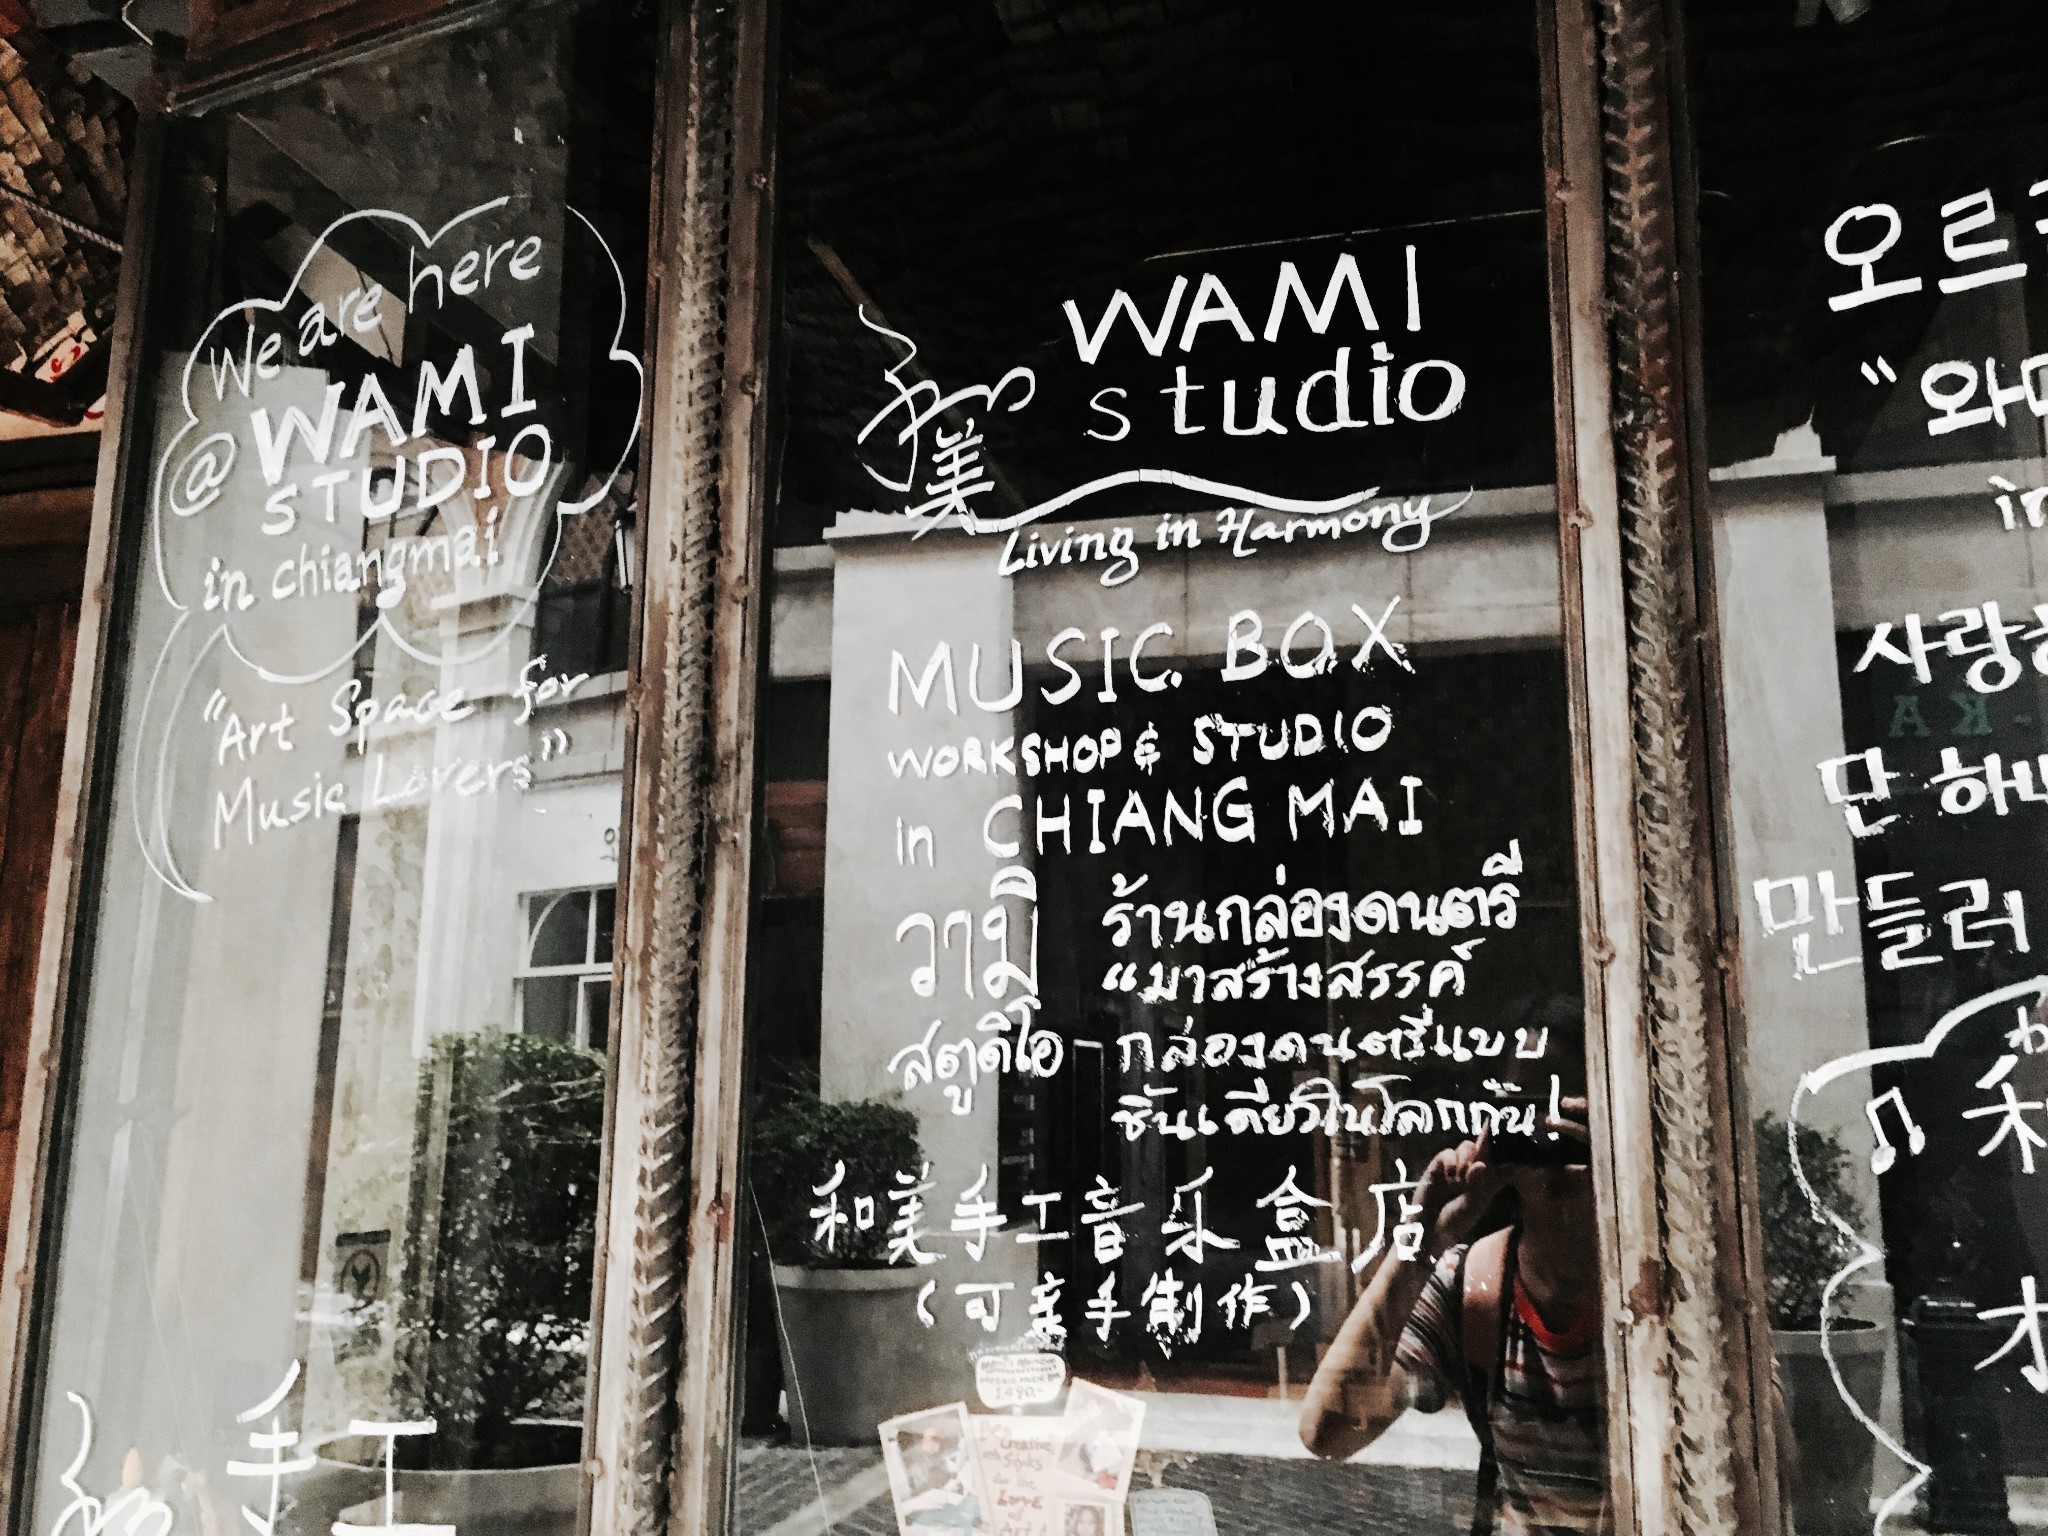 We are here
@ WAMI
STUDIO
in chiangmai
"Art Space for
Music Lovers"
手工
和美
WAMI
studio
Living in Harmony
MUSIC BOX
WORKSHOP & STUDIO
in CHIANG MAI
วามิ
สตูดิโอ
ร้านกล่องดนตรี
"มาสร้างสรรค์
กล่องดนตรีแบบ
ชิ้นเดียวในโลกกัน!
和美手工音乐盒店
(可亲手制作)
1490.-
Creative
the
Love
of
Art
오르
"와
in
사랑
만
만들러
和